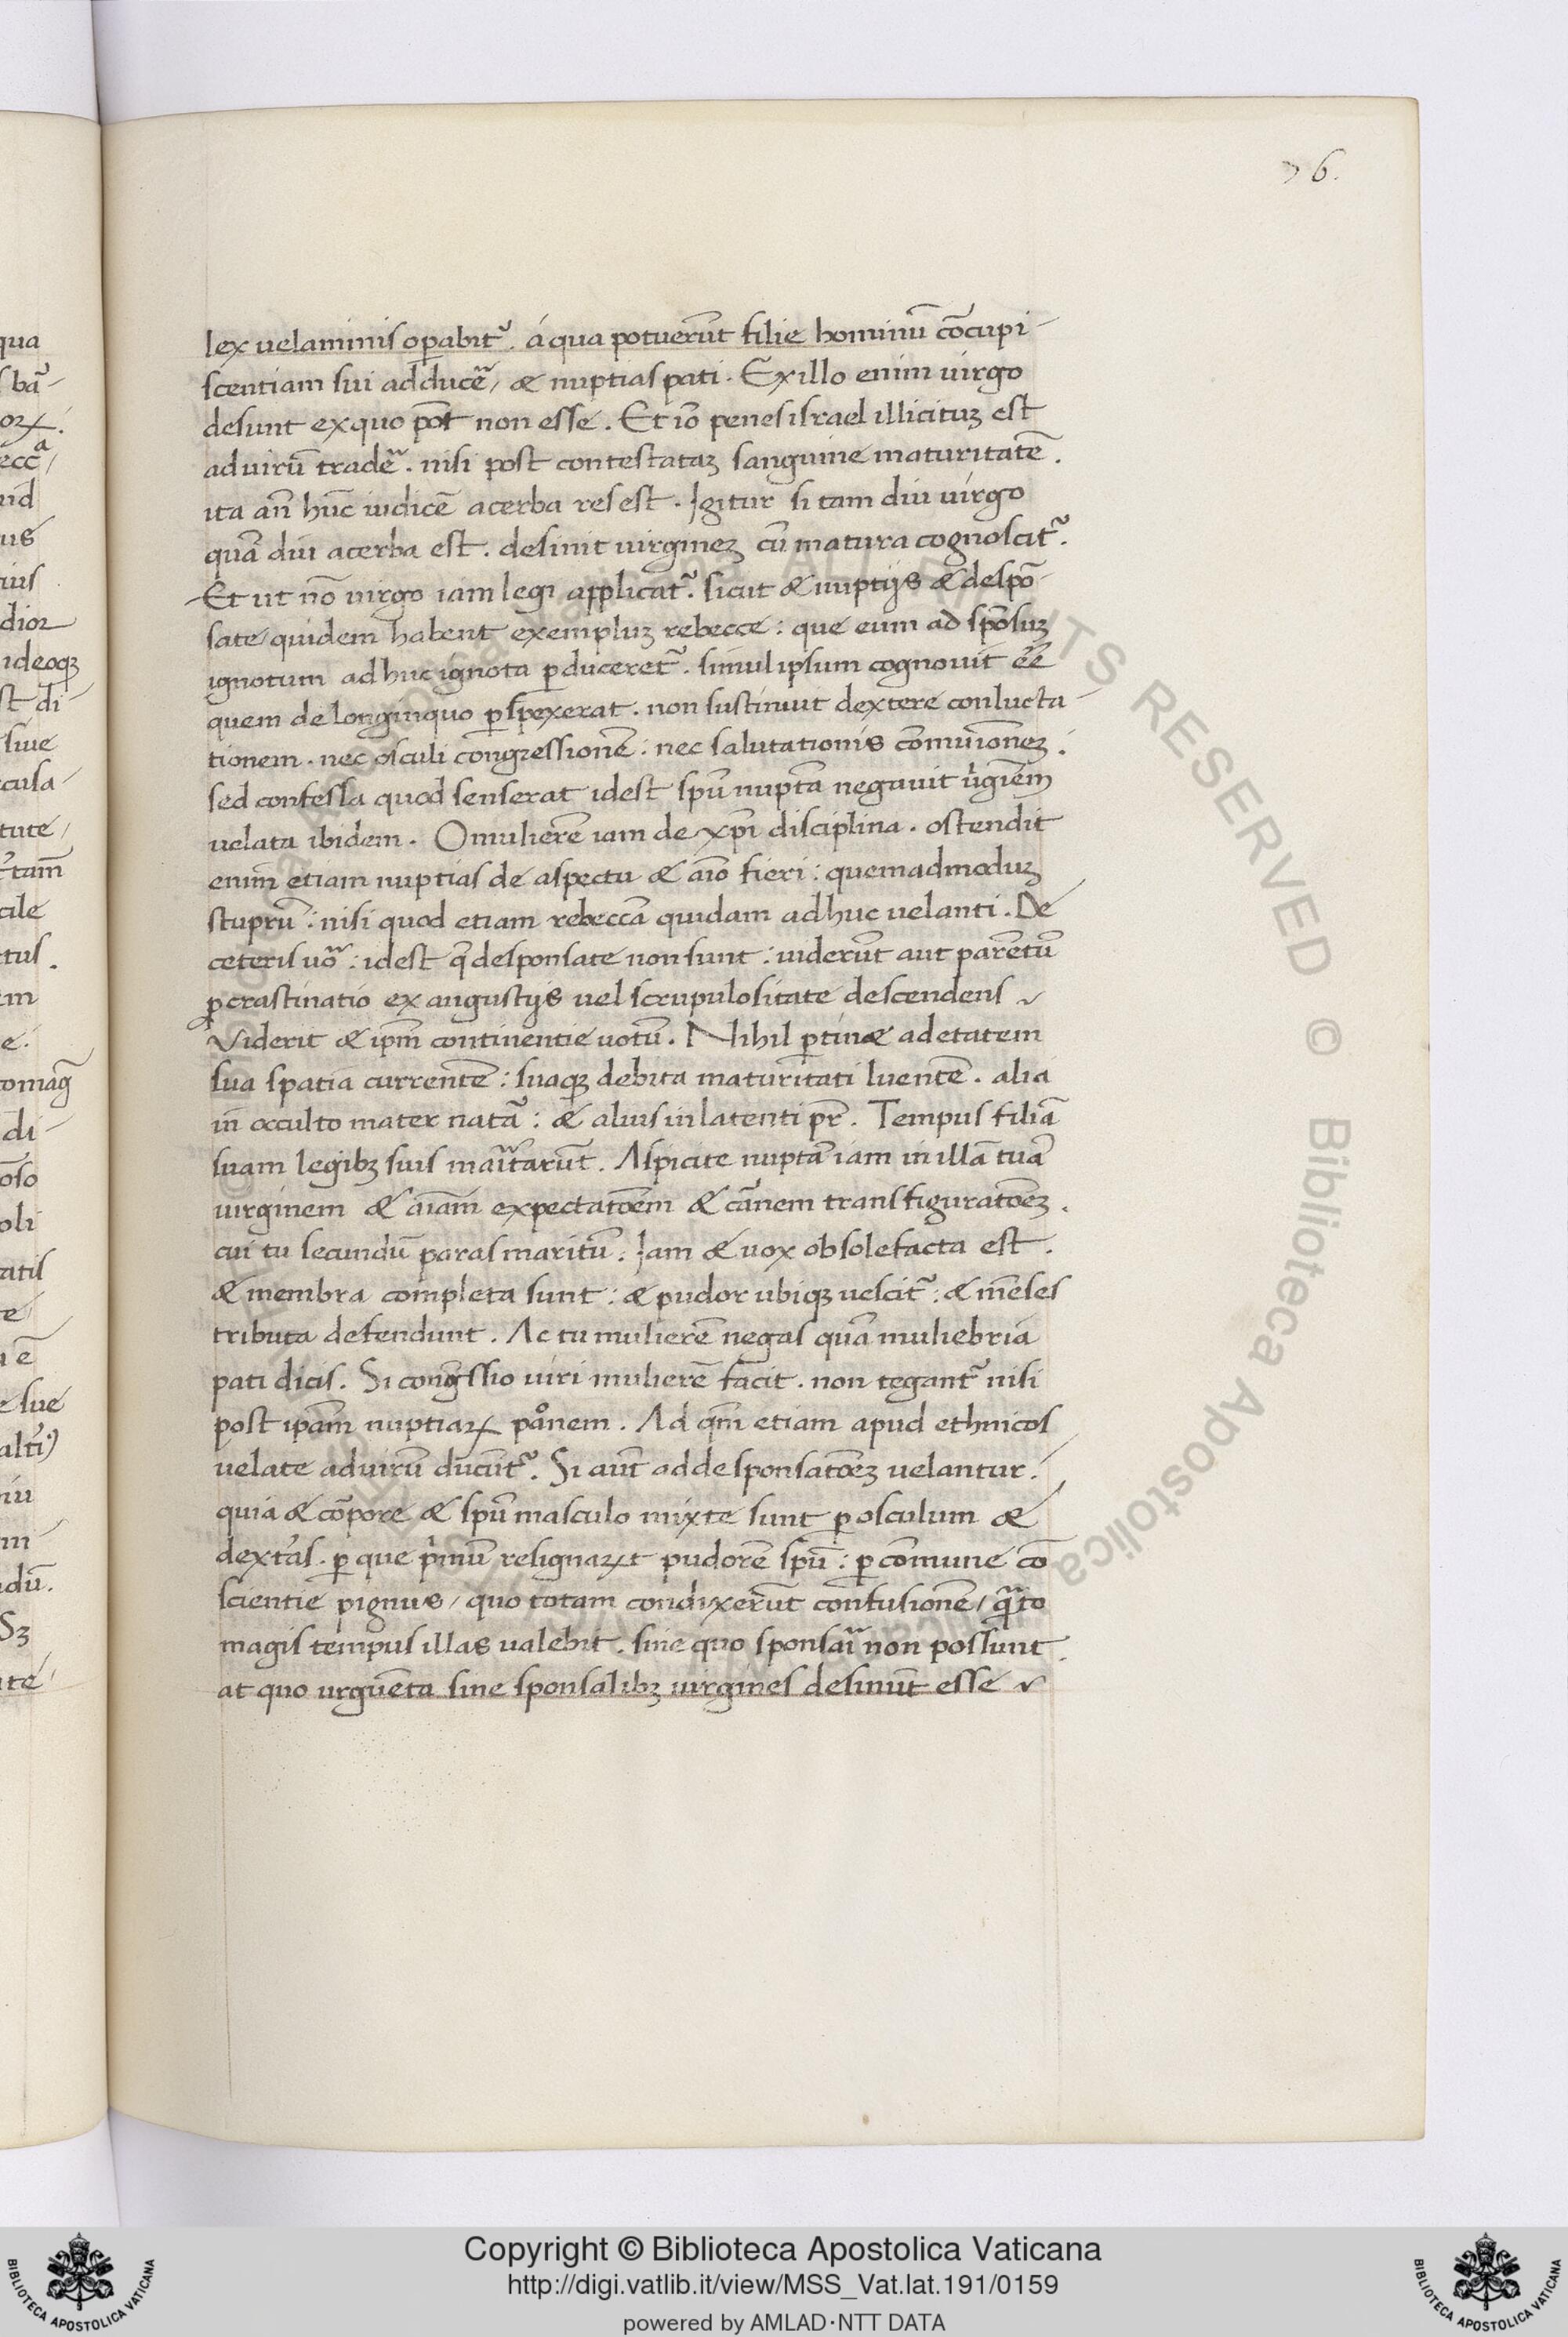 76.
lex uelaminis oꝑabit᷑. á qua potuerūt filie hominū cōcupi-
scentiam sui adducẽ, & nuptias pati. Ex illo enim uirgo
desunt ex quo pōt non esse. Et iō penes israel illicituꝫ est
ad uirū tradẽ. nisi post contestataꝫ sanguine maturitatē.
ita añ hūc iudicē acerba res est. Igitur si tam diu uirgo
quā diu acerba est. desinit uirgineꝫ cū matura cognoscit᷑.
Et ut nō uirgo iam legi applicat᷑. sicut & nuptijs & despō-
sate, quidem habent exempluꝫ rebecce: que eum ad spōsuꝫ
ignotum adhuc ignota ꝑduceret᷑. simul ipsum cognouit ēē
quem de longinquo ꝑspexerat. non sustinuit dextere conlucta-
tionem. nec osculi congressionē: nec salutationis cōmuīoneꝫ.
sed confessa quod senserat idest spū nuptā negauit ūgīem
uelata ibidem. O mulierē iam de xp̄i disciplina. ostendit
enim etiam nuptias de aspectu & aīo fieri: quemadmoduꝫ
stuprū: nisi quod etiam rebeccā quidam adhuc uelanti. De
ceteris uō: idest q̄ desponsate non sunt: uiderūt aut parētū
ꝓcrastinatio ex angustijs uel scrupulositate descendens
Viderit & ip̄m continentie uotū. Nihil ꝑtin& ad etatem
sua spatia currentē: suaqꝫ debita maturitati luentē. alia
in occulto mater natā: & alius in latenti pr̄. Tempus filiā
suam legibꝫ suis marĩtarūt. Aspicite nuptā iam in illā tuā
uirginem & aīam expectatōem & cārnem transfiguratōeꝫ.
cui tu secundū paras maritū. Iam & uox obsolefacta est.
& membra completa sunt: & pudor ubiqꝫ uescit᷑: & mēses
tributa defendunt. Ac tu mulierē negas quā muliebria
pati dicis. Si congr̄ssio uiri mulierē facit. non tegant᷑ nisi
post ipam̄ nuptiaꝝ pånem. Ad qm̄ etiam apud ethnicos
uelate ad uirū ducūt᷑. Si aūt ad desponsatōeꝫ uelantur.
quia & cōpore & spū masculo mixte sunt ꝑ osculum &
dextas̓. ꝑ que pⁱmū resignaꝝt pudorē spū: ꝑ cōmune cō
scientie pignus, quo totam condixerūt confusionē, qᷓto
magis tempus illas ualebit. sine quo sponsaĩ non possunt.
at quo urguēta sine sponsalibꝫ uirgines desinūt esse
Copyright © Biblioteca Apostolica Vaticana
http://digi.vatlib.it/view/MSS_Vat.lat.191/0159
powered by AMLAD·NTT DATA